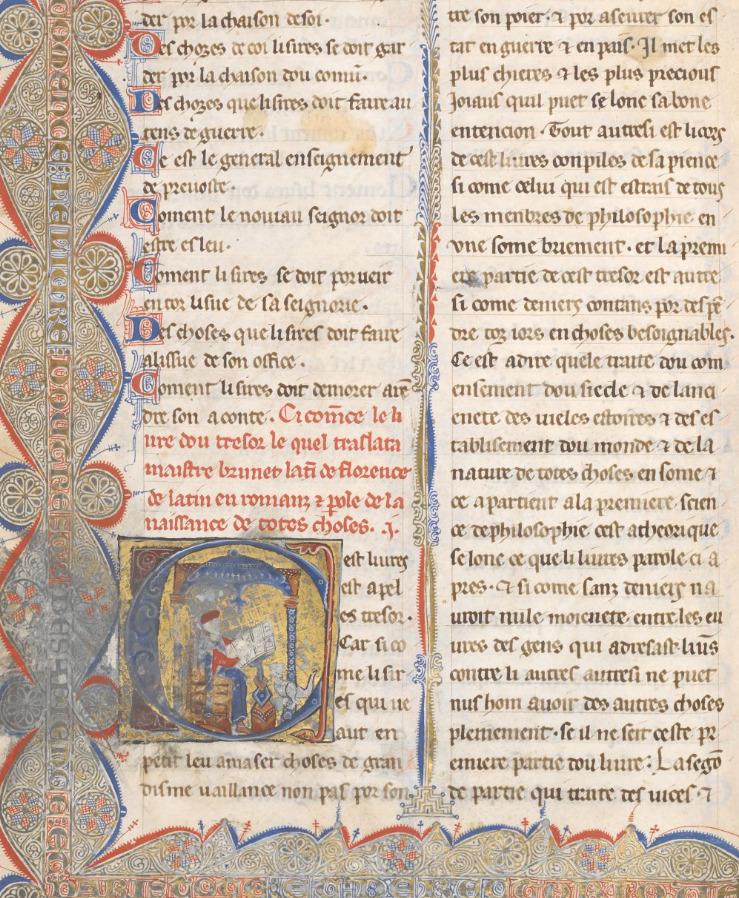 der por la chaison de soi·
Des chozes de coi li sires se doit gar
der por la chaison dou comū·
Des chozes que li sires doit faire au
tens de guerre·
Ce est le general enseignement
de prevoste·
Coment le nouiau seignor doit
estre esleu·
Coment li sires se doit porueir
encor lisue de sa seignorie·
Des choses que li sires doit faire
alissue de son office·
Coment li sires doit demorer atē
dre son aconte· Ci comēce le li
ure dou tresor le quel traslata
maistre brunet latī de florence
de latin en romanz ⁊ pole de la
naissance de totes choses. .j.
Cest liures
est apel
es tresor·
Car si co
me li sir
es qui ue
aut en
petit leu amaser choses de gran
disme uaillance non pas por son
tre son poier· ⁊ por aseurer son es
tat en guerre ⁊ en pais· Il met les
plus chieres ⁊ les plus precious
Joiaus quil puet selonc sa bone
entencion· Tout autresi est li cors
de cest liures conpilos de sapience
si come celui qui est estrais de tous
les menbres de philosophie en
vne some briement· et la premi
ere partie de cest tresor est autre
si come deniers contans por despē
dre toz iors en choses besoignables·
Ce est adire quele traite dou com
ensement dou siecle ⁊ de lanci
enete des uieles estoires ⁊ des es
tablisement dou monde ⁊ de la
nature de totes choses en some ⁊
ce apartient a la premiere scien
ce de philosophie cest a theorique
selonc ce que li liures parole ci a
pres· Et si come sanz deniers na
uroit nule moienete entre les eu
ures des gens qui adresast li uns
contre li autres autresi ne puet
nus hom auoir des autres choses
pleniement· se il ne seit ceste pr
emiere partie dou liure: La segō
de partie qui traite des uices· ⁊